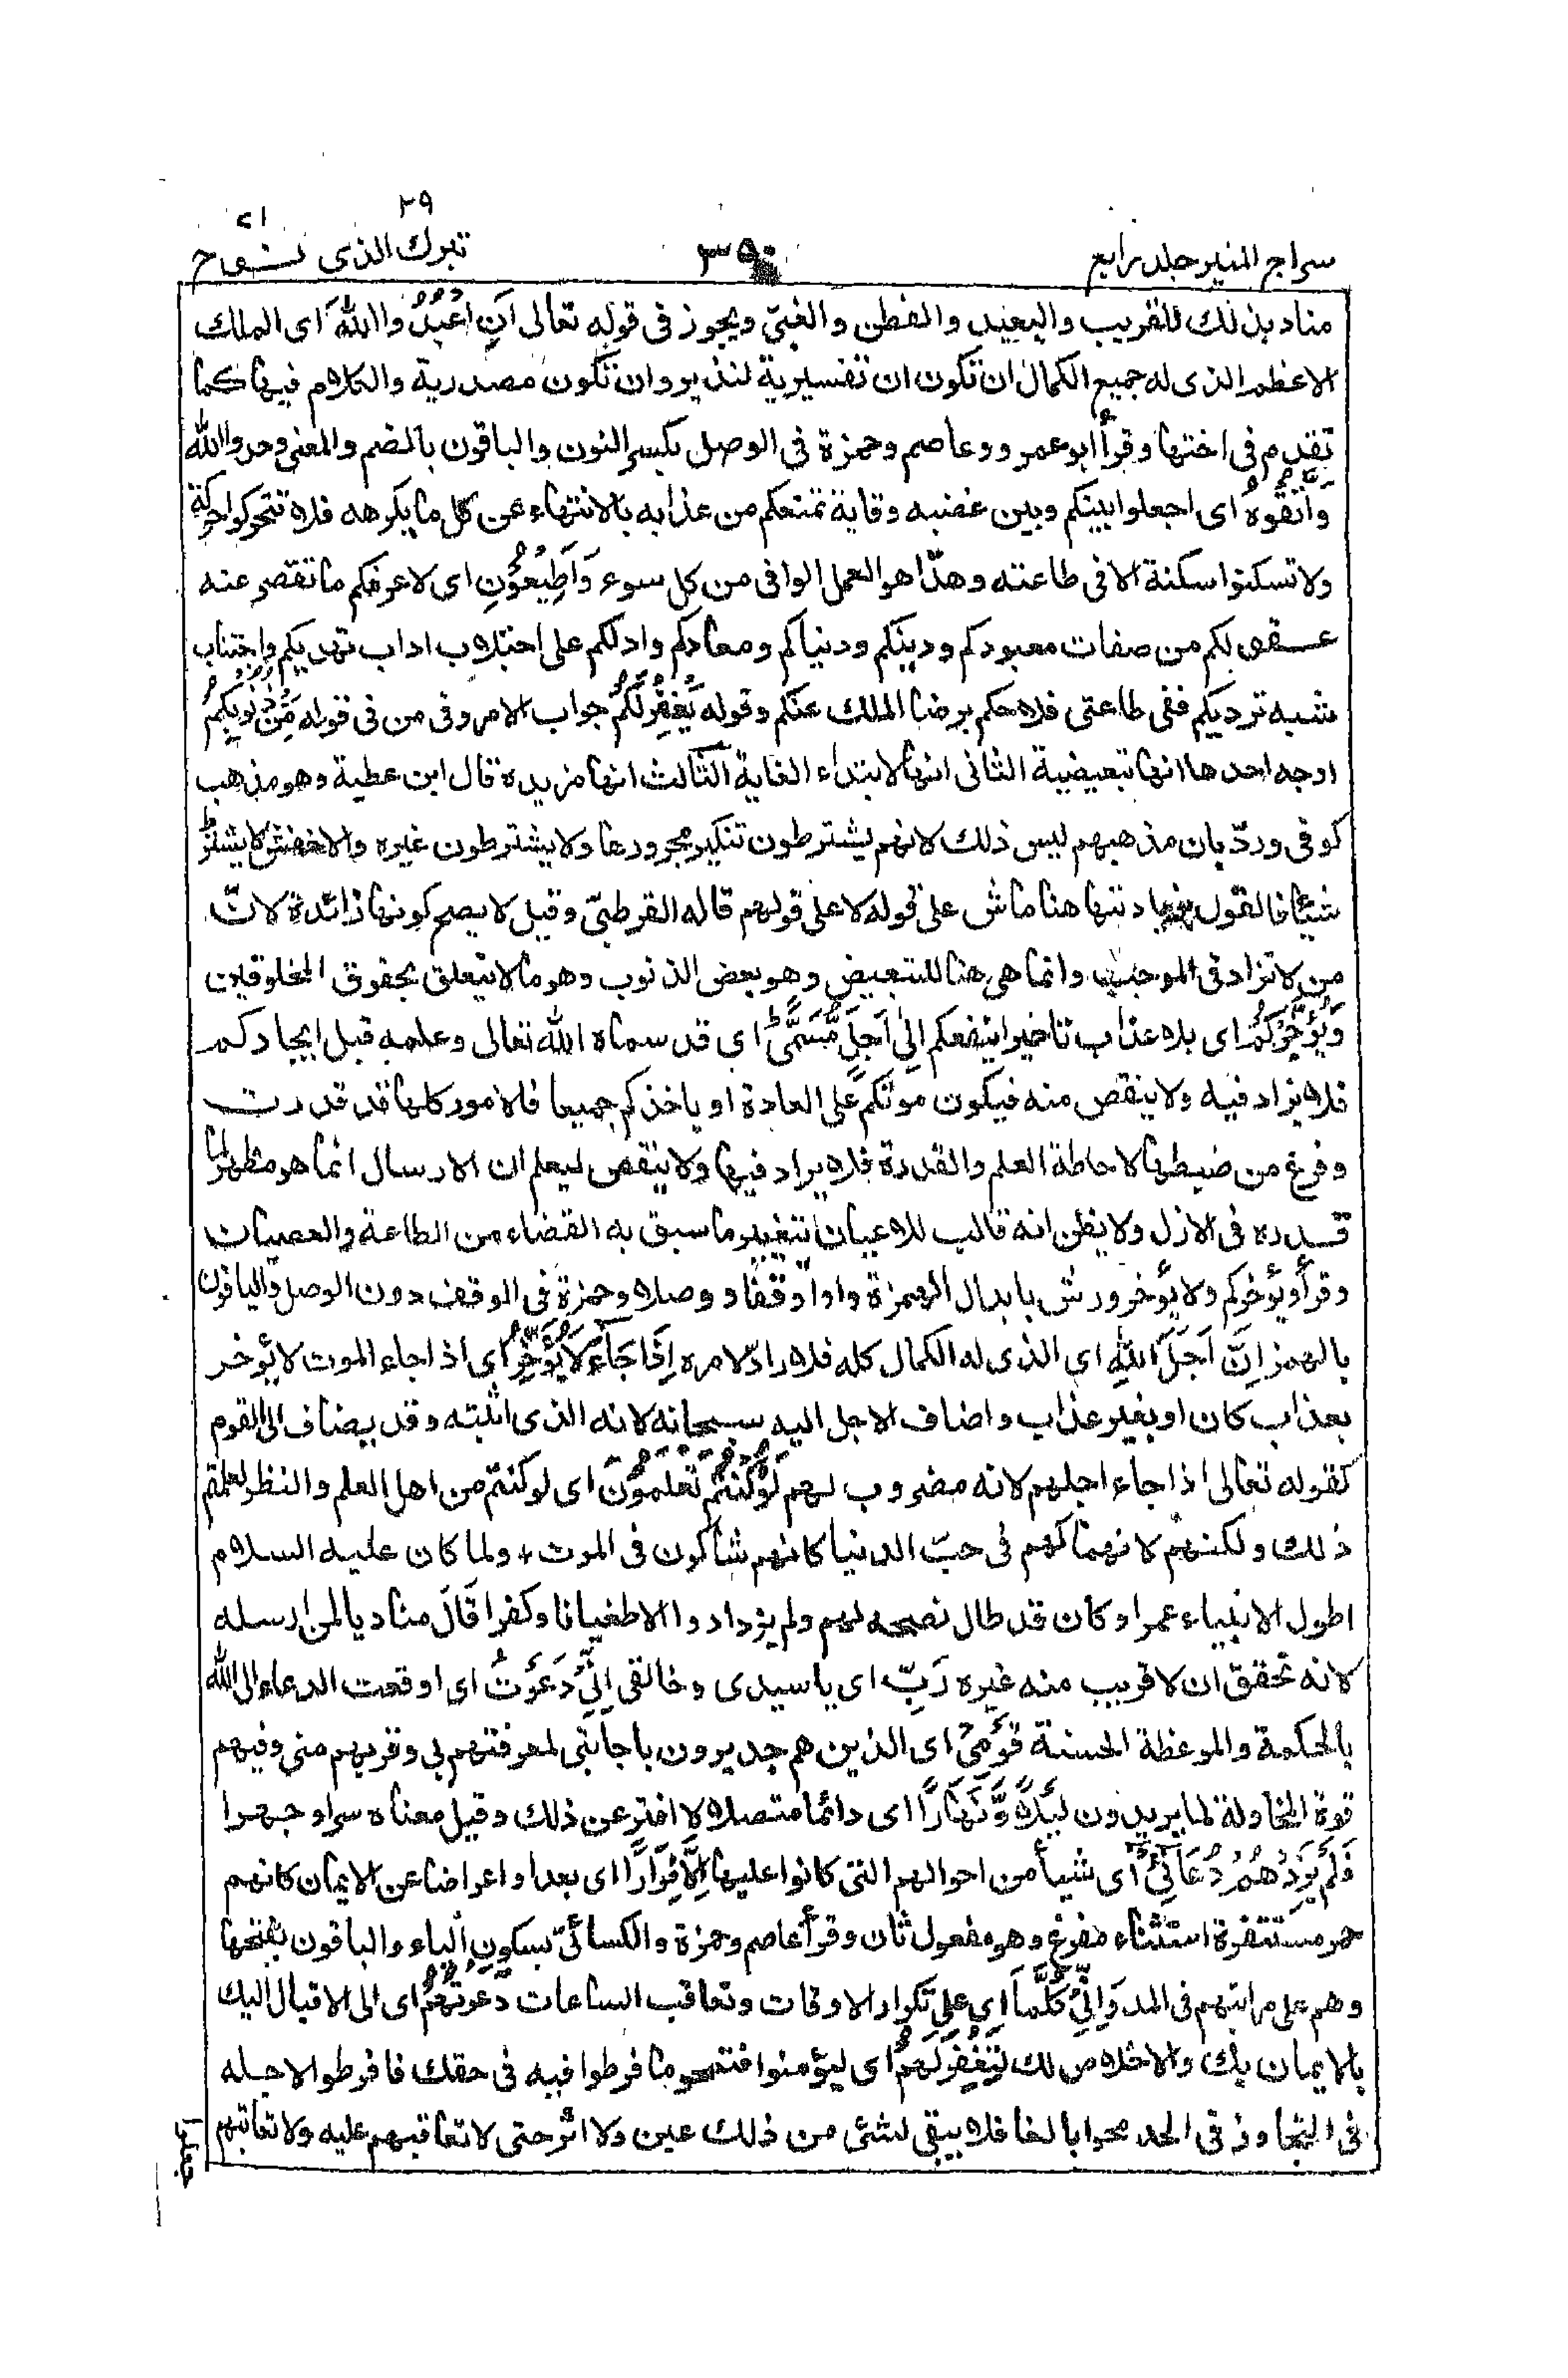 سراج المنير جلد رابع
٣٩٠
٢٩
٧١
تبرك الذى نوح
مناد بذلك للقريب والبعيد والفطن والغبىّ ويجوز فى قوله تعالى اَنِ اعْبُدُوا اللّٰهَ اى الملك
الاعظم الذى له جميع الكمال ان تكون ان تفسيرية لنذير وان تكون مصدرية والكلام فيها كما
تقدم فى اختها وقرأ ابو عمرو وعاصم وحمزة فى الوصل بكسر النون والباقون بالضم والمعنى وحدوا الله
وَاتَّقُوْهُ اى اجعلوا بينكم وبين غضبه وقاية تمنعكم من عذابه بالانتهاء عن كل ما يكرهه فلا تتحركوا حركة
ولا تسكنوا سكنة الا فى طاعته وهذا هو العمل الواقى من كل سوء وَاَطِيْعُوْنِ اى لاعرفكم ما تقصر عنه
عقولكم من صفات معبودكم ودينكم ودنياكم ومعادكم وادلكم على اجتلاب اداب تهديكم واجتناب
شبه ترديكم ففى طاعتى فلاحكم برضا الملك عنكم وقوله يَغْفِرْ لَكُمْ جواب الامر وفى من فى قوله مِّنْ ذُنُوْبِكُمْ
اوجه احدها انها تبعيضية الثانى انها لابتداء الغاية الثالث انها مزيدة قال ابن عطية وهو مذهب
كوفى وردّ بان مذهبهم ليس ذلك لانهم يشترطون تنكير مجرورها ولا يشترطون غيره والاخفش لا يشترط
شيئا فالقول بزيادتها هنا ماش على قوله لا على قولهم قاله القرطبىّ وقيل لا يصح كونها زائدة لانّ
من لا تزاد فى الموجب وانما هى هنا للتبعيض وهو بعض الذنوب وهو ما لا يتعلق بحقوق المخلوقين
وَيُؤَخِّرْكُمْ اى بلا عذاب تاخيرا ينفعكم اِلٰى اَجَلٍ مُّسَمًّى ط اى قد سماه الله تعالى وعلمه قبل ايجادكم
فلا يزاد فيه ولا ينقص منه فيكون موتكم على العادة او ياخذكم جميعا فالامور كلها قد قدرت
وفرغ من ضبطها لاحاطة العلم والقدرة فلا يزاد فيها ولا ينقص ليعلم ان الارسال انما هو مظهر لما
قدره فى الازل ولا يظن انه قالب للاعيان بتغيير ما سبق به القضاء من الطاعة والعصيان
وقرأ ويؤخركم ولا يؤخر ورش بابدال الهمزة واوا وقفا ووصلا وحمزة فى الوقف دون الوصل والباقون
بالهمز اِنَّ اَجَلَ اللّٰهِ اى الذى له الكمال كله فلا رادّ لامره اِذَا جَآءَ لَا يُؤَخَّرُ اى اذا جاء الموت لا يؤخر
بعذاب كان او بغير عذاب واضاف الاجل اليه سبحانه لانه الذى اثبته وقد يضاف الى القوم
كقوله تعالى اذا جاء اجلهم لانه مضروب لهم لَوْ كُنْتُمْ تَعْلَمُوْنَ اى لو كنتم من اهل العلم والنظر لعلمتم
ذلك ولكنهم لانهماكهم فى حبّ الدنيا كانهم شاكون فى الموت + ولما كان عليه السلام
اطول الانبياء عمرا وكان قد طال نصحه لهم ولم يزدادوا الا طغيانا وكفرا قَالَ مناديا لمن ارسله
لانه تحقق ان لا قريب منه غيره رَبِّ اى يا سيدى وخالقى اِنِّيْ دَعَوْتُ اى اوقعت الدعاء الى الله
بالحكمة والموعظة الحسنة قَوْمِيْ اى الذين هم جديرون باجابتى لمعرفتهم بى وقربهم منى وفيهم
قوة المحاولة لما يريدون لَيْلًا وَّنَهَارًا اى دائما متصلا لا افتر عن ذلك وقيل معناه سرا وجهرا
فَلَمْ يَزِدْهُمْ دُعَآئِيْٓ اى شيأ من احوالهم التى كانوا عليها اِلَّا فِرَارًا اى بعدا واعراضا عن الايمان كانهم
حمر مستنفرة استثناء مفرغ وهو مفعول ثان وقرأ عاصم وحمزة والكسائىّ بسكون الياء والباقون بفتحها
وهم على مراتبهم فى المد وَاِنِّيْ كُلَّمَا اى على تكرار الاوقات وتعاقب الساعات دَعَوْتُهُمْ اى الى الاقبال اليك
بالايمان بك والاخلاص لك لِتَغْفِرَ لَهُمْ اى ليؤمنوا فتمحو ما فرطوا فيه فى حقك فافرطوا لاجله
فى التجاوز فى الحد محوا بالغا فلا يبقى لشئ من ذلك عين ولا اثر حتى لا تعاقبهم عليه ولا تعاتبهم
جعلوا